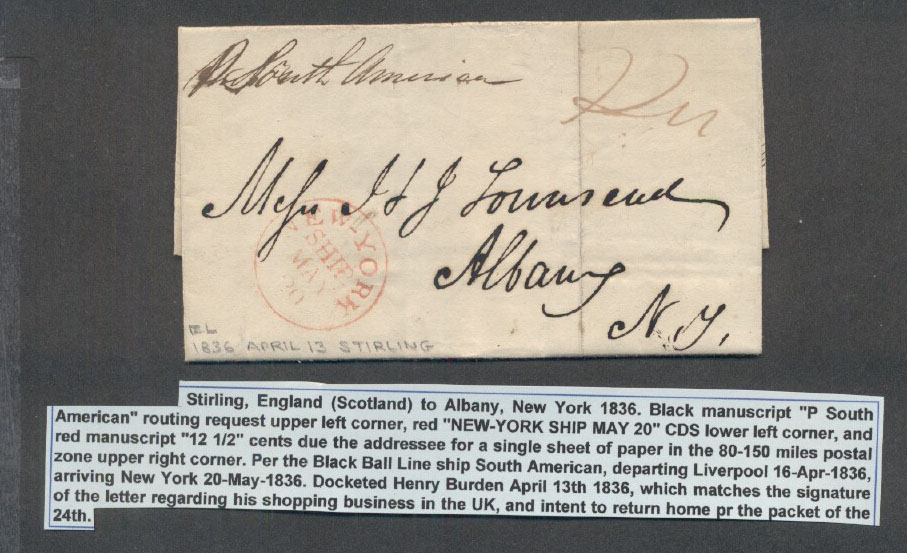 P South American
Messrs I & J Townsend
NEW-YORK
SHIP
MAY
20
Albany
N.Y.
EL
1836 APRIL 13 STIRLING
Stirling, England (Scotland) to Albany, New York 1836. Black manuscript "P South
American" routing request upper left corner, red "NEW-YORK SHIP MAY 20" CDS lower left corner, and
red manuscript "12 1/2" cents due the addressee for a single sheet of paper in the 80-150 miles postal
zone upper right corner. Per the Black Ball Line ship South American, departing Liverpool 16-Apr-1836,
arriving New York 20-May-1836. Docketed Henry Burden April 13th 1836, which matches the signature
of the letter regarding his shopping business in the UK, and intent to return home pr the packet of the
24th.